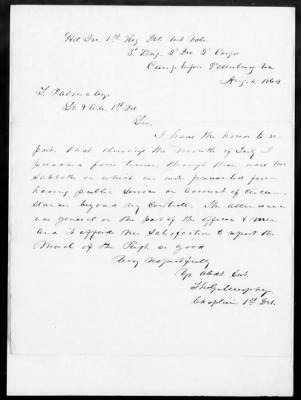 Hd Qrs 1st Reg Del Vet Vols
3d Brig. 2d Div 5" Corps
Camp before Petersburg Va
Aug 2 1864
Lt & A.A. 1st Del
Sir,
I have the honor to re-
port that during the Month of July I
preached four times, though there were two
Sabbaths on which we were prevented from
having public service on account of circum-
stances beyond my control. The attendance
was general on the part of the officers & men
and it affords me satisfaction to report the
Moral of the Regt as good
Very respectfully
Yr obdt Svt
Thos G Murphey
Chaplain 1st Del.